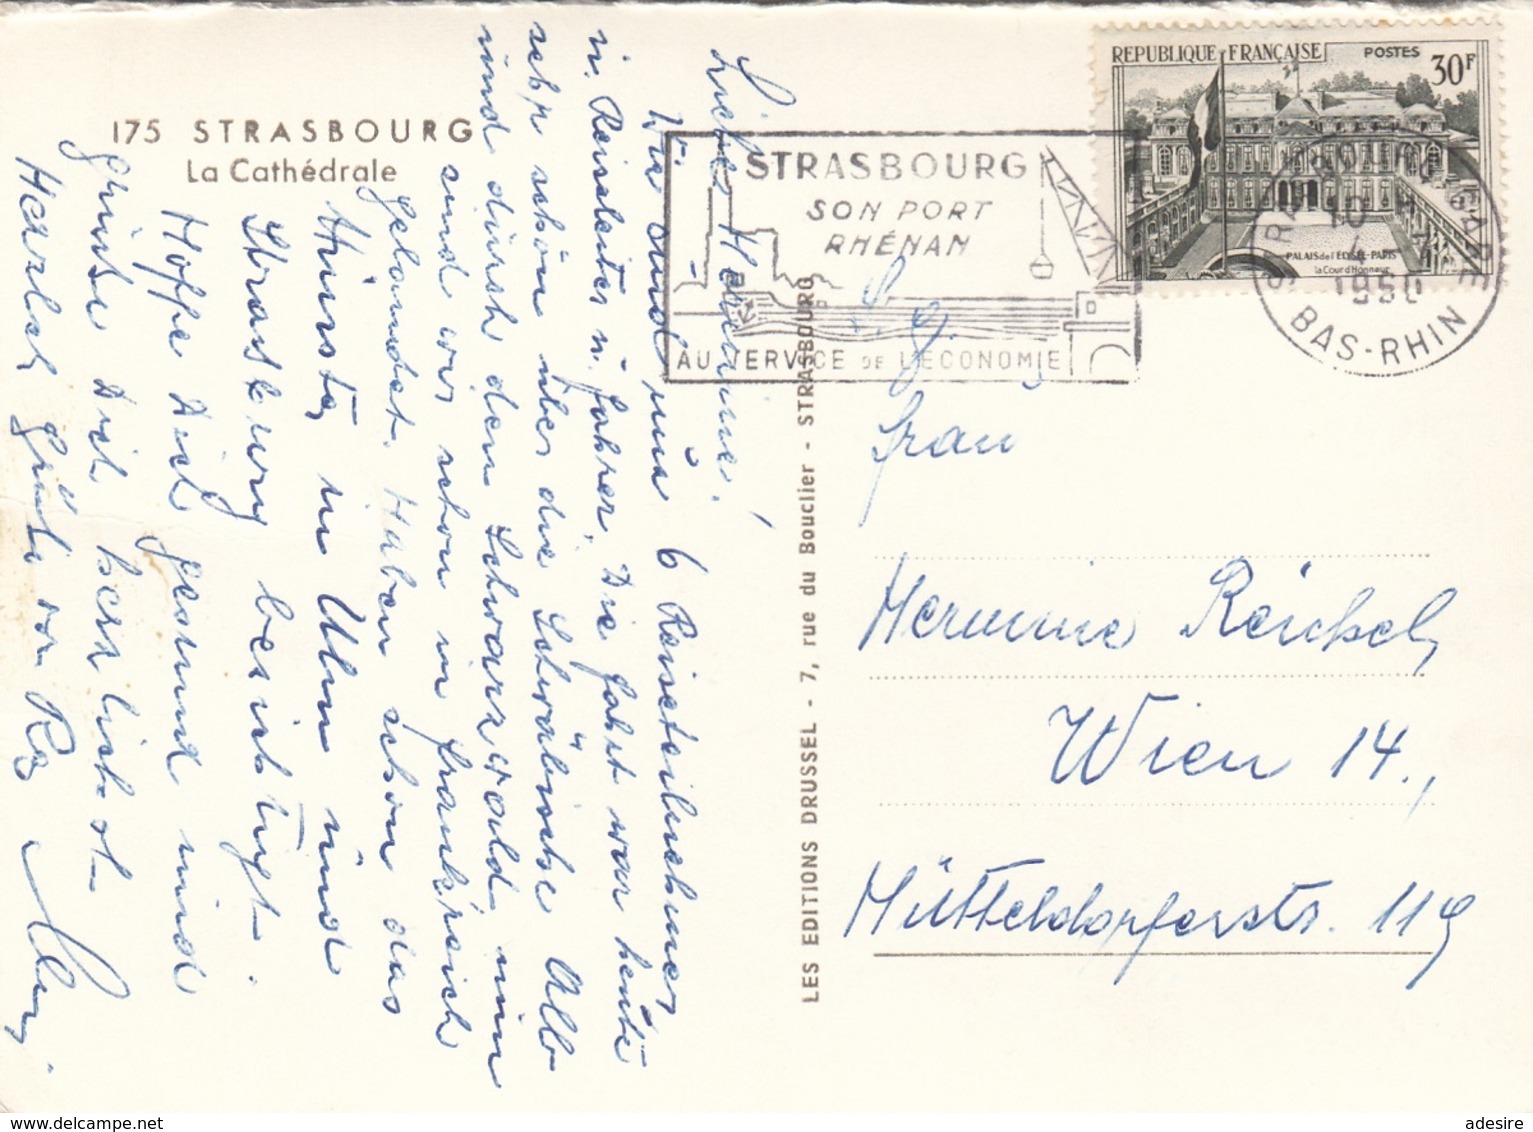 175 STRASBOURG
La Cathédrale
Liebe Hermine!
Wir sind nur 6 Reiseteilnehmer
u. Reiseleiter u. Fahrer. Die Fahrt war heute
sehr schön über die Schwäbische Alb
und durch den Schwarzwald. nun
sind wir schon in Frankreich
gelandet. Haben schon das
Münster in Ulm und
Strassburg besichtigt.
Hoffe Dich gesund und
grüße Dich herzlichst
Herzlich Grüße von
STRASBOURG
SON PORT
RHÉNAN
AU SERVICE DE L'ECONOMIE
REPUBLIQUE FRANÇAISE
POSTES
30F
PALAIS de l'ELYSEE-PARIS
la Cour d'Honneur
STRASBOURG GARE
BAS-RHIN
LES EDITIONS DRUSSEL - 7, rue du Bouclier - STRASBOURG
Frau
Hermine Reichel
Wien 14.,
Hütteldorferstr. 119
adesire